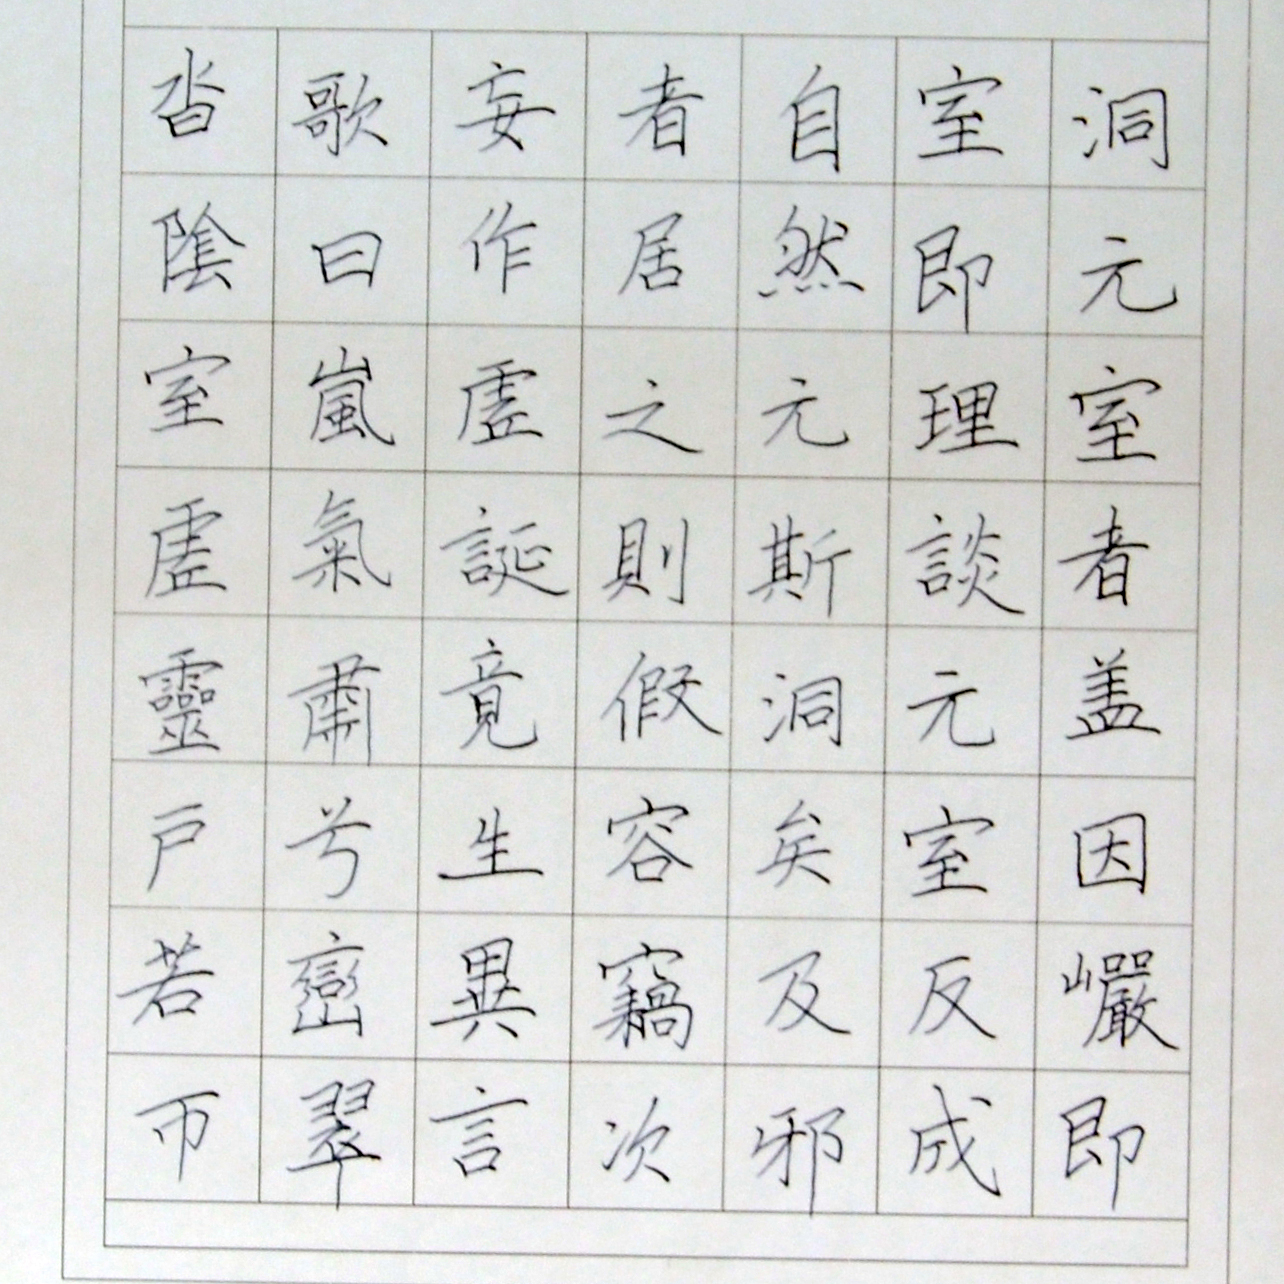 洞元室者盖因巗即
室即理談元室反成
自然元斯洞矣及邪
者居之則假容竊次
妄作虛誕竟生異言
歌曰嵐氣肅兮巒翠
沓陰室虛靈戶若帀